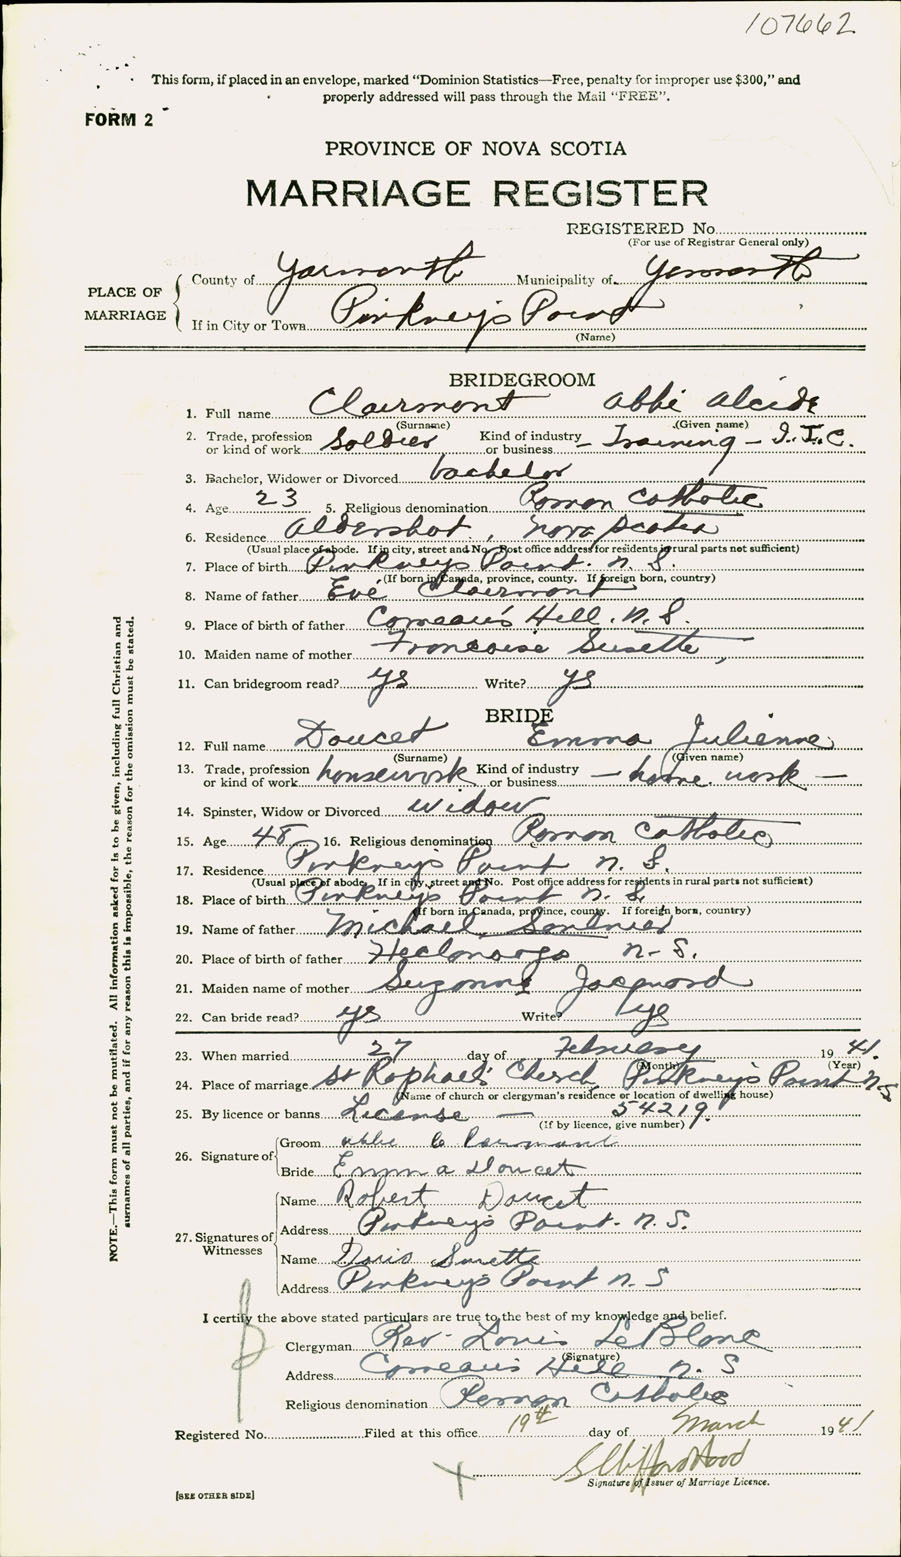 107662
This form, if placed in an envelope, marked "Dominion Statistics—Free, penalty for improper use $300," and
properly addressed will pass through the Mail "FREE".
FORM 2
PROVINCE OF NOVA SCOTIA
MARRIAGE REGISTER
REGISTERED No.
(For use of Registrar General only)
PLACE OF MARRIAGE
County of Yarmouth Municipality of Yarmouth
If in City or Town Pinkney's Point
(Name)
BRIDEGROOM
1. Full name Clairmont Abbé Alcide
(Surname) (Given name)
2. Trade, profession or kind of work Soldier Kind of industry or business — Training — I.T.C.
3. Bachelor, Widower or Divorced bachelor
4. Age 23 5. Religious denomination Roman Catholic
6. Residence Aldershot, Nova Scotia
(Usual place of abode. If in city, street and No. Post office address for residents in rural parts not sufficient)
7. Place of birth Pinkney's Point. N.S.
(If born in Canada, province, county. If foreign born, country)
8. Name of father Evé Clairmont
9. Place of birth of father Comeau's Hill. N.S.
10. Maiden name of mother Francoise Surette
11. Can bridegroom read? yes Write? yes
BRIDE
12. Full name Doucet Emma Julienne
(Surname) (Given name)
13. Trade, profession or kind of work housework Kind of industry or business — home work —
14. Spinster, Widow or Divorced widow
15. Age 48 16. Religious denomination Roman Catholic
17. Residence Pinkney's Point N.S.
(Usual place of abode. If in city, street and No. Post office address for residents in rural parts not sufficient)
18. Place of birth Pinkney's Point N.S.
(If born in Canada, province, county. If foreign born, country)
19. Name of father Michael Saulnier
20. Place of birth of father N.S.
21. Maiden name of mother Suzanne Jacquard
22. Can bride read? yes Write? yes
23. When married 27 day of February 1941.
(Month) (Year)
24. Place of marriage St Raphael's Church, Pinkney's Point N.S
(Name of church or clergyman's residence or location of dwelling house)
25. By licence or banns License — 54219.
(If by licence, give number)
26. Signature of
Groom Abbe Clairmont
Bride Emma Doucet
27. Signatures of Witnesses
Name Robert Doucet
Address Pinkney's Point. N.S.
Name Doris Surette
Address Pinkney's Point N.S
I certify the above stated particulars are true to the best of my knowledge and belief.
Clergyman Rev. Louis LeBlanc
(Signature)
Address Comeau's Hill N.S
Religious denomination Roman Catholic
Registered No. Filed at this office 19th day of March 1941
Signature of Issuer of Marriage Licence.
[SEE OTHER SIDE]
NOTE.—This form must not be mutilated. All information asked for is to be given, including full Christian and
surnames of all parties, and if for any reason this is impossible, the reason for the omission must be stated.